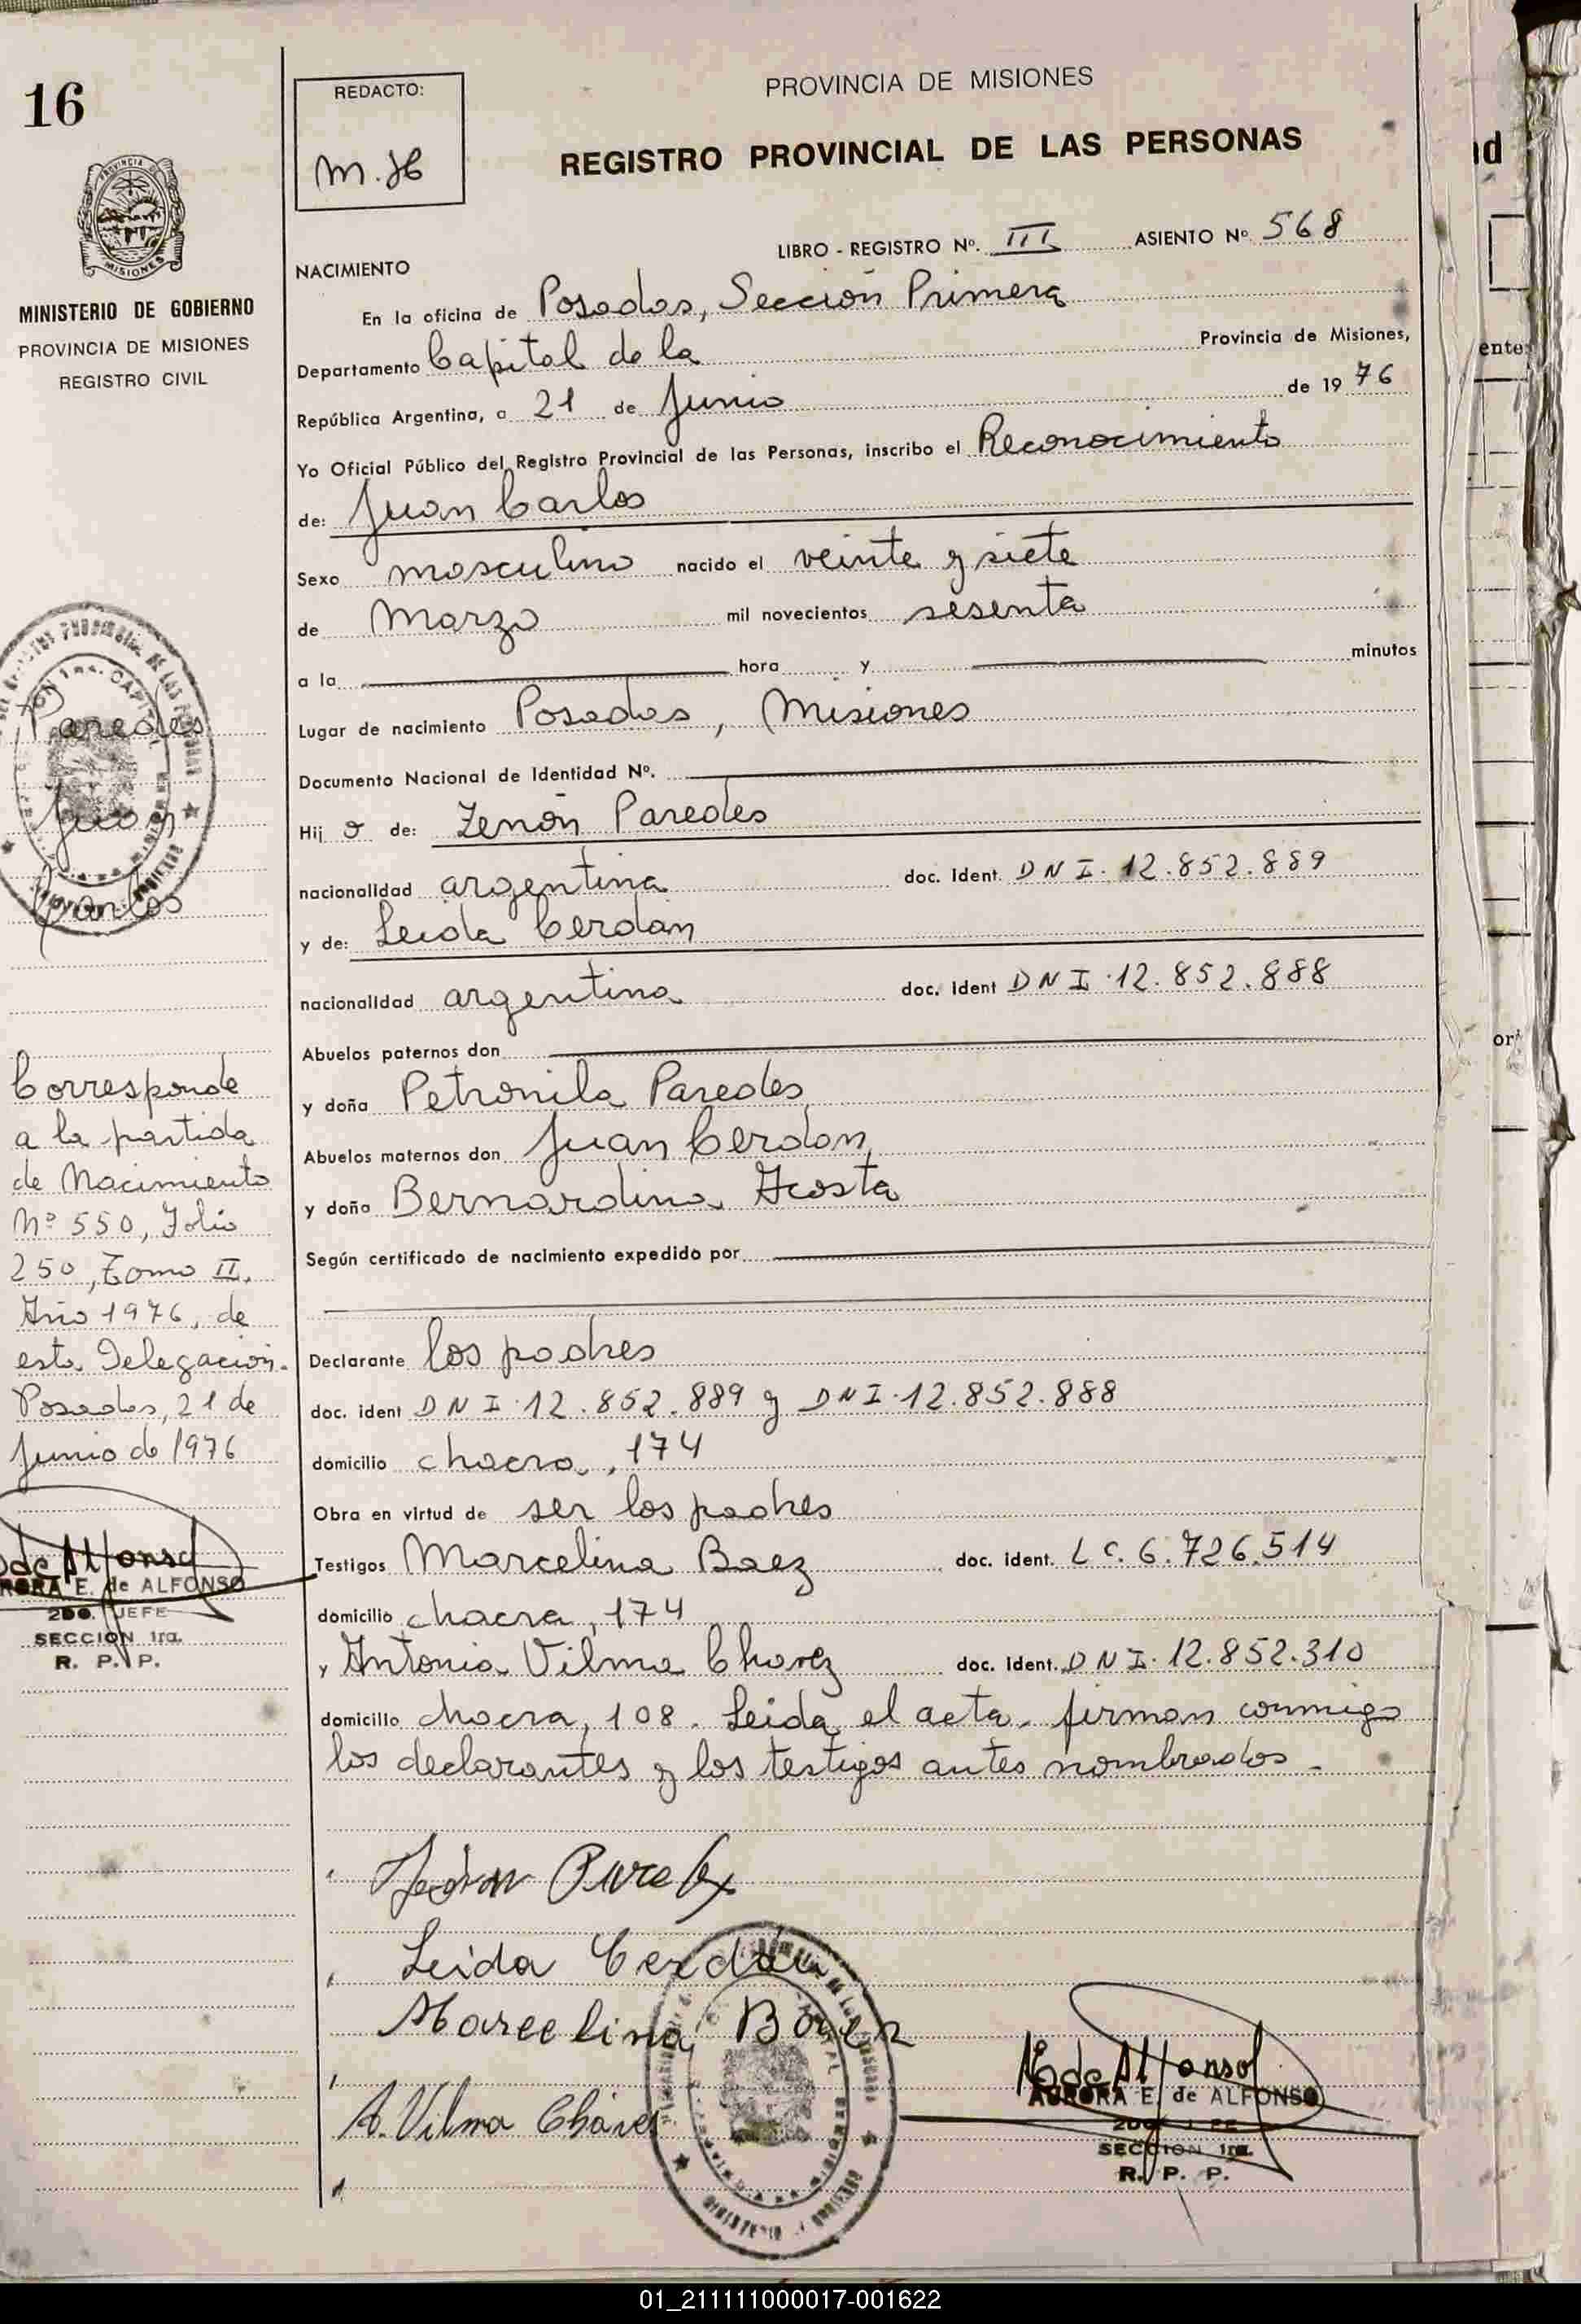 16
REDACTO:
M. H
PROVINCIA DE MISIONES
REGISTRO PROVINCIAL DE LAS PERSONAS
MISIONES
MINISTERIO DE GOBIERNO
PROVINCIA DE MISIONES
REGISTRO CIVIL
LIBRO - REGISTRO Nº. III ASIENTO Nº 568
NACIMIENTO
En la oficina de Posadas, Sección Primera
Departamento Capital de la Provincia de Misiones,
República Argentina, a 21 de Junio de 1976
Yo Oficial Público del Registro Provincial de las Personas, inscribo el Reconocimiento
de: Juan Carlos
Sexo masculino nacido el veinte y siete
de Marzo mil novecientos sesenta
a la hora y minutos
Lugar de nacimiento Posadas, Misiones
Documento Nacional de Identidad Nº.
Hijo de: Zenón Paredes
nacionalidad argentina doc. Ident. DNI. 12.852.889
y de: Leida Cerdan
nacionalidad argentina doc. Ident DNI. 12.852.888
Abuelos paternos don
y doña Petronila Paredes
Abuelos maternos don Juan Cerdan
y doña Bernardina Acosta
Según certificado de nacimiento expedido por
Declarante los padres
doc. ident DNI. 12.852.889 y DNI. 12.852.888
domicilio chacra, 174
Obra en virtud de ser los padres
Testigos Marcelina Baez doc. ident. LC. 6.726.514
domicilio chacra, 174
y Antonia Vilma Chavez doc. Ident. DNI. 12.852.310
domicilio chacra, 108. Leida el acta, firman conmigo
los declarantes y los testigos antes nombrados.
Paredes
Juan
Carlos
Corresponde
a la partida
de Nacimiento
Nº 550, Folio
250, Tomo II,
Año 1976, de
esta Delegación.
Posadas, 21 de
Junio de 1976
AURORA E. de ALFONSO
2DO. JEFE
SECCION 1ra.
R. P. P.
Leida Cerdán
Marcelina Baez
A. Vilma Chávez
AURORA E. de ALFONSO
2DO. JEFE
SECCION 1ra.
R. P. P.
01_211111000017-001622